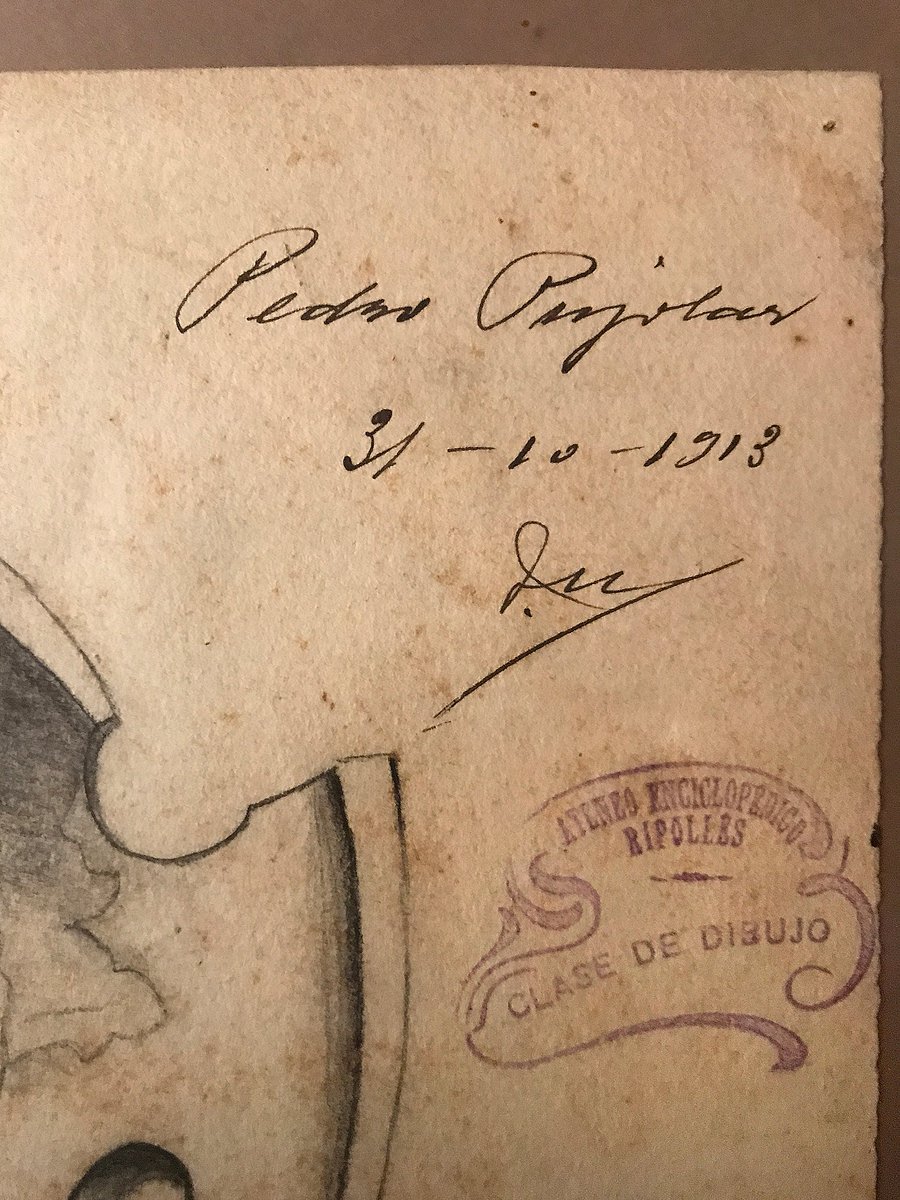 Pedro Pujolar
31-10-1913
ATENEO ENCICLOPEDICO
RIPOLLÉS
CLASE DE DIBUJO